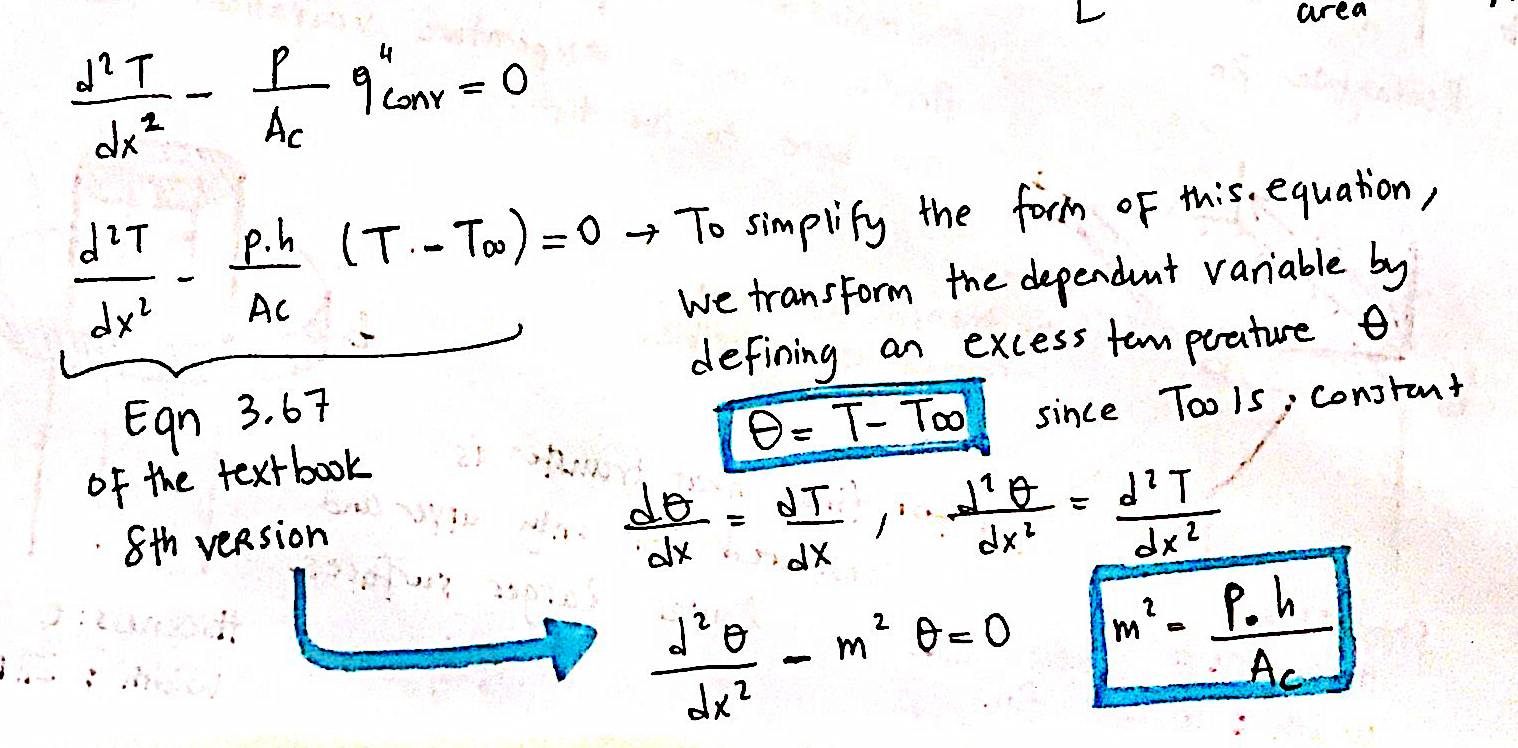 area
d²T/dx² - P/Ac q"conv = 0
d²T/dx² - p.h/Ac (T - T∞) = 0 → To simplify the form of this equation,
we transform the dependent variable by
defining an excess temperature θ
θ = T - T∞ since T∞ is constant
Eqn 3.67
of the textbook
8th version
dθ/dx = dT/dx , d²θ/dx² = d²T/dx²
d²θ/dx² - m² θ = 0
m² = P.h/Ac